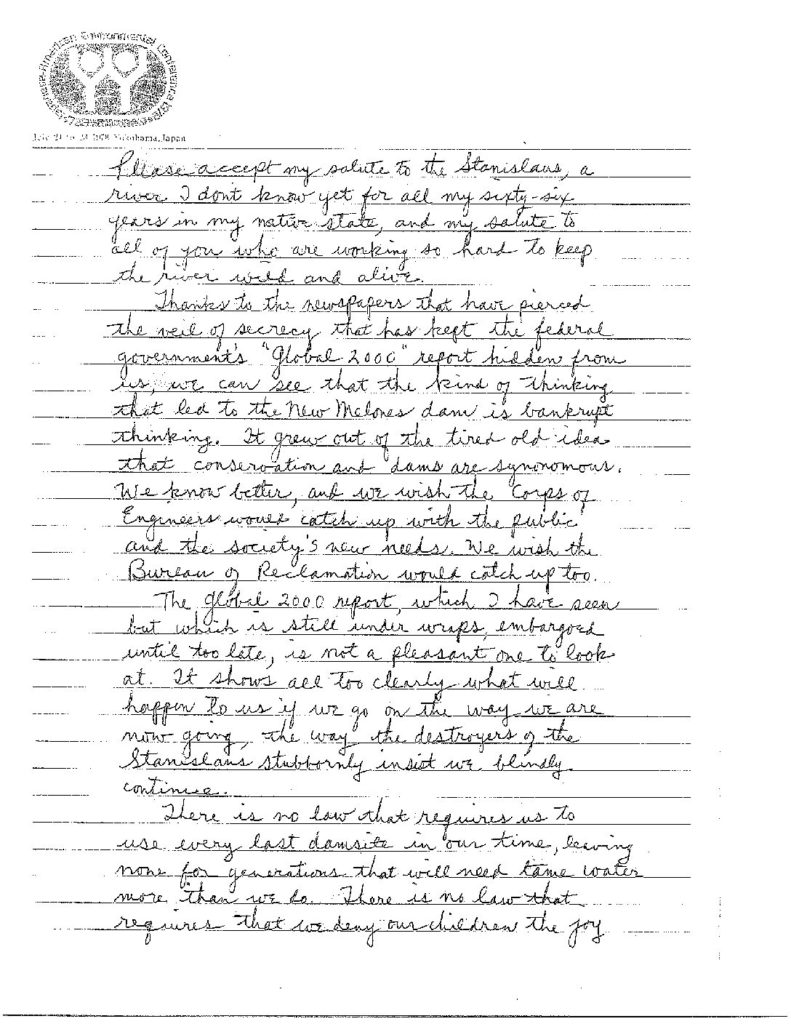 Japanese-American Environmental Conference 1978
July 21 to 23 1978 Yokohama, Japan
Please accept my salute to the Stanislaus, a
river I dont know yet for all my sixty-six
years in my native state, and my salute to
all of you who are working so hard to keep
the river wild and alive.
Thanks to the newspapers that have pierced
the veil of secrecy that has kept the federal
government's "Global 2000" report hidden from
us, we can see that the kind of thinking
that led to the New Melones dam is bankrupt
thinking. It grew out of the tired old idea
that conservation and dams are synonomous.
We know better, and we wish the Corps of
Engineers would catch up with the public
and the society's new needs. We wish the
Bureau of Reclamation would catch up too.
The global 2000 report, which I have seen
but which is still under wraps, embargoed
until too late, is not a pleasant one to look
at. It shows all too clearly what will
happen to us if we go on the way we are
now going, the way the destroyers of the
Stanislaus stubbornly insist we blindly
continue.
There is no law that requires us to
use every last damsite in our time, leaving
none for generations that will need tame water
more than we do. There is no law that
requires that we deny our children the joy